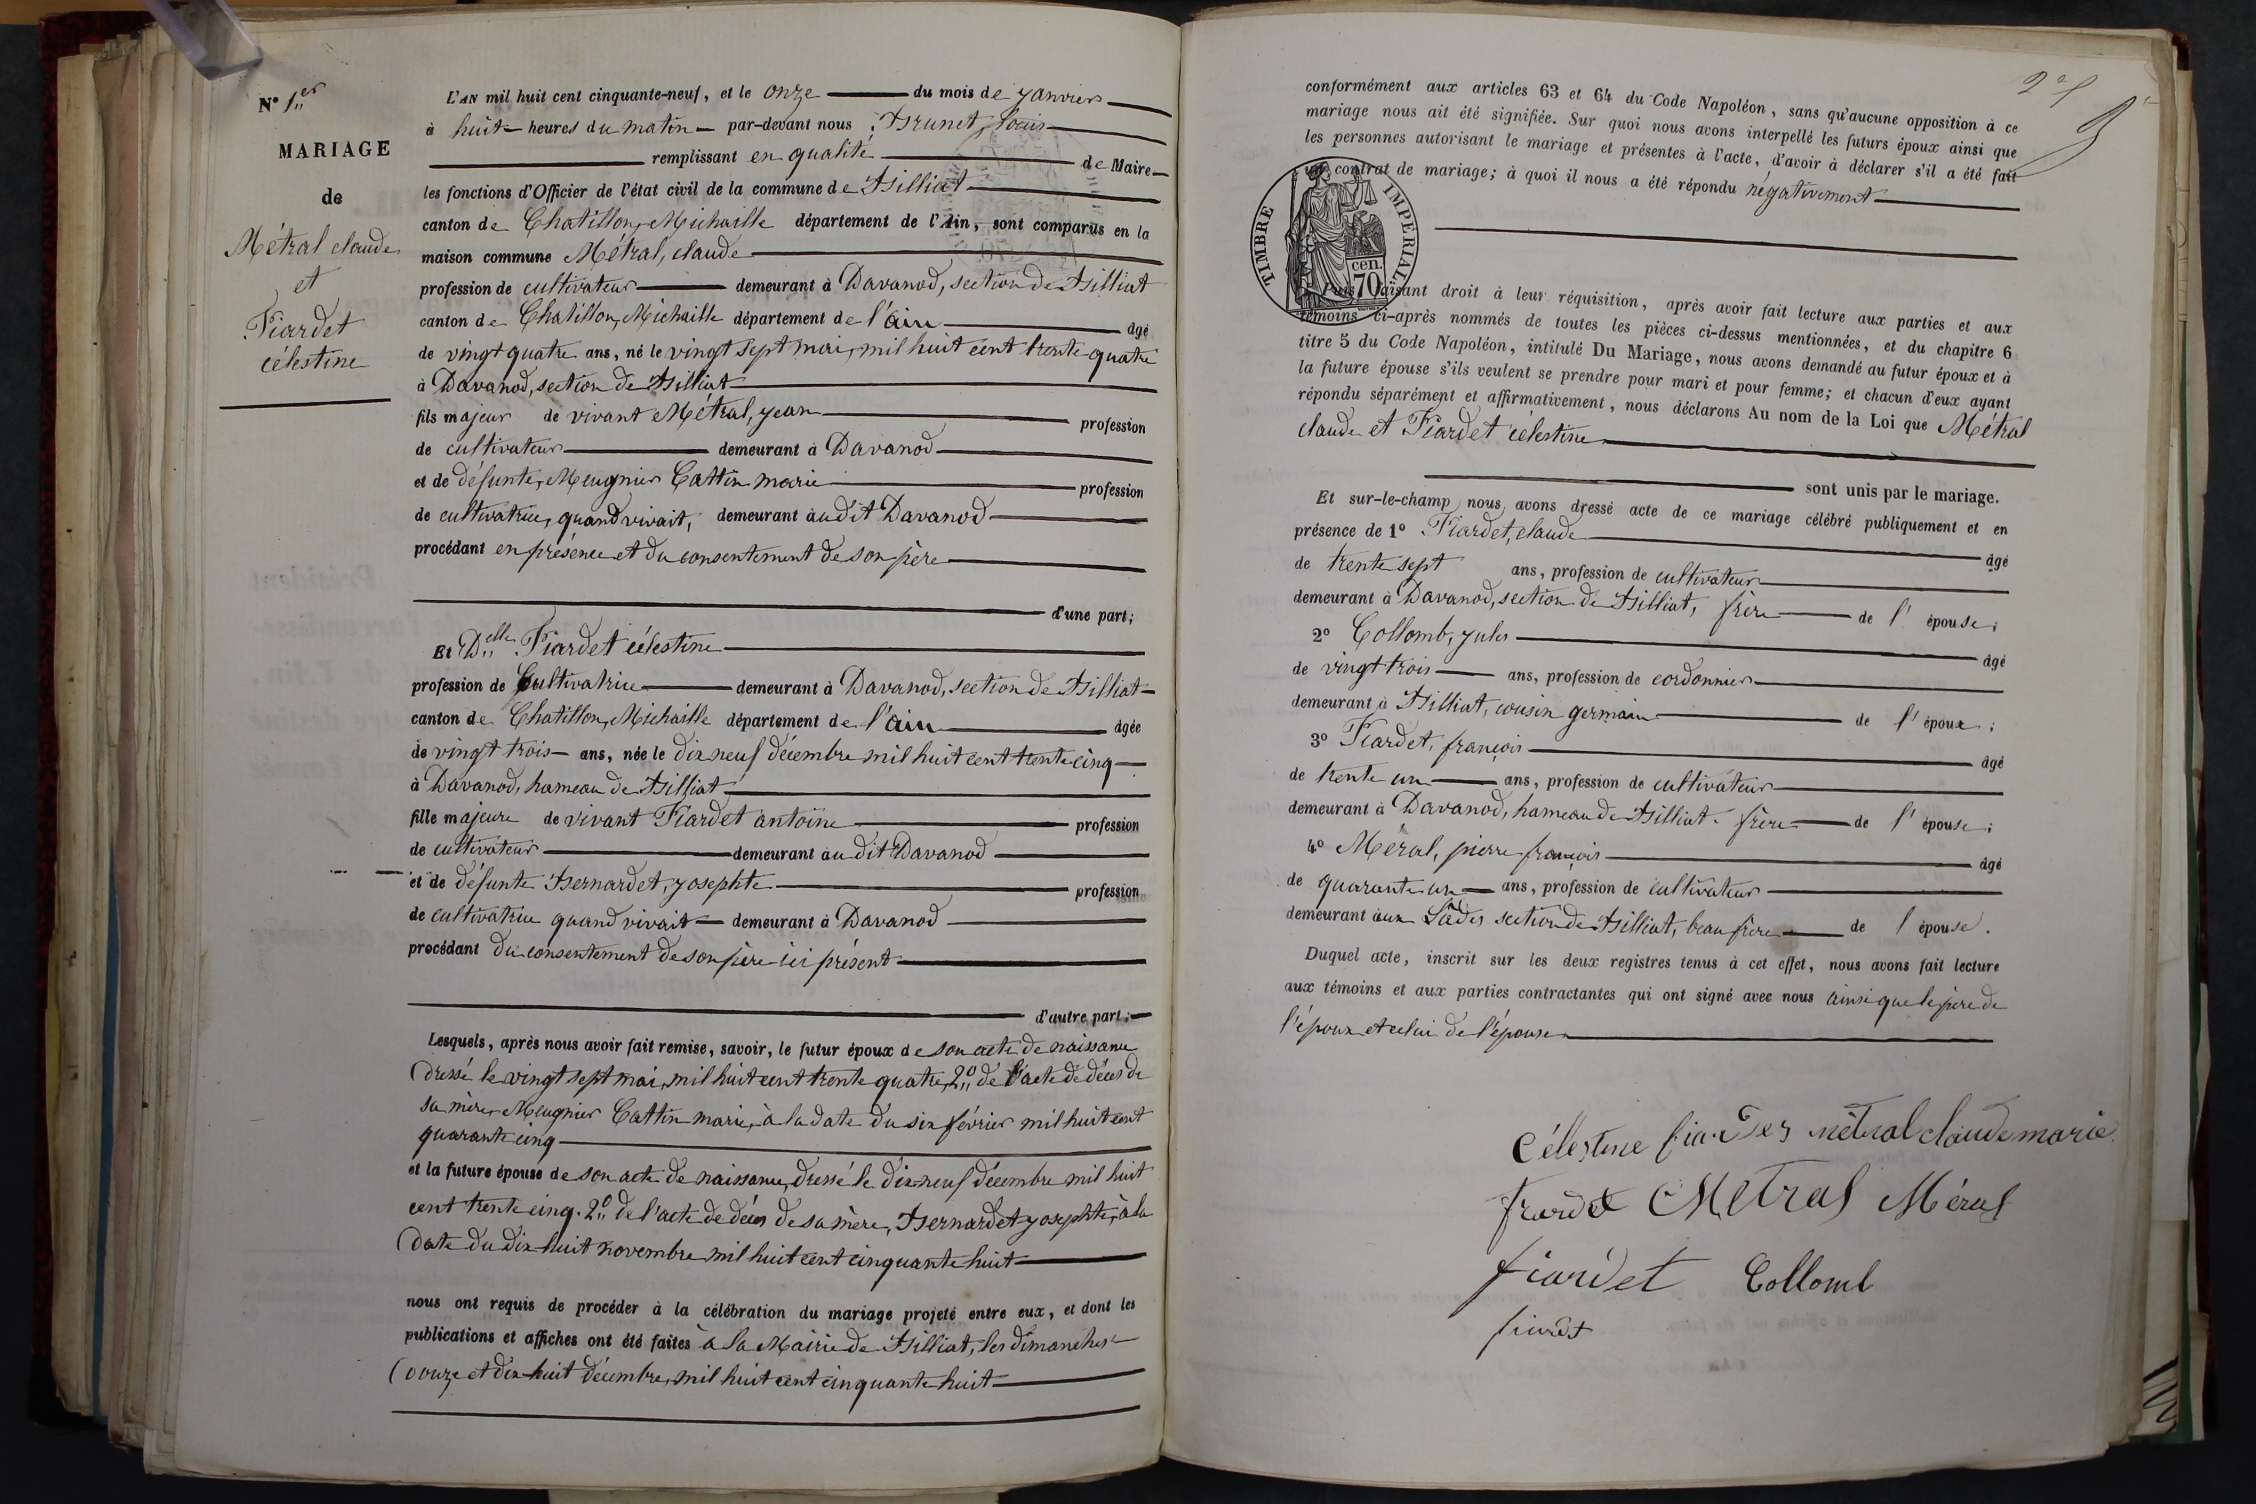 N° 1er
MARIAGE
de
Métral claude
et
Fiardet
célestine
L'AN mil huit cent cinquante-neuf, et le onze du mois de janvier
à huit heures du matin par-devant nous Brunet, Louis
remplissant en qualité de Maire
les fonctions d'Officier de l'état civil de la commune de Billiat
canton de Chatillon, Michaille département de l'Ain, sont comparus en la
maison commune Métral, claude
profession de cultivateur demeurant à Davanod, section de Billiat
canton de Chatillon, Michaille département de l'ain âgé
de vingt quatre ans, né le vingt sept mai, mil huit cent trente quatre
à Davanod, section de Billiat
fils majeur de vivant Métral, jean profession
de cultivateur demeurant à Davanod
et de défunte, Meugnier Cattin marie profession
de cultivatrice, quand vivait, demeurant audit Davanod
procédant en présence et du consentement de son père
d'une part;
Et Delle Fiardet célestine
profession de Cultivatrice demeurant à Davanod, section de Billiat
canton de Chatillon, Michaille département de l'ain âgée
de vingt trois ans, née le dix neuf décembre mil huit cent trente cinq
à Davanod, hameau de Billiat
fille majeure de vivant Fiardet antoine profession
de cultivateur demeurant audit Davanod
et de défunte Bernardet, josephte profession
de cultivatrice quand vivait demeurant à Davanod
procédant du consentement de son père ici présent
d'autre part;
Lesquels, après nous avoir fait remise, savoir, le futur époux de son acte de naissance
dressé le vingt sept mai, mil huit cent trente quatre, 2° de l'acte de décès de
sa mère, Meugnier Cattin marie, à la date du six février mil huit cent
quarante cinq
et la future épouse de son acte de naissance, dressé le dix neuf décembre mil huit
cent trente cinq. 2° de l'acte de décès de sa mère, Bernardet josephte, à la
date du dix huit novembre mil huit cent cinquante huit
nous ont requis de procéder à la célébration du mariage projeté entre eux, et dont les
publications et affiches ont été faites à la Mairie de Billiat, les dimanches
douze et dix huit décembre, mil huit cent cinquante huit
conformément aux articles 63 et 64 du Code Napoléon, sans qu'aucune opposition à ce
mariage nous ait été signifiée. Sur quoi nous avons interpellé les futurs époux ainsi que
les personnes autorisant le mariage et présentes à l'acte, d'avoir à déclarer s'il a été fait
un contrat de mariage; à quoi il nous a été répondu négativement
TIMBRE IMPERIAL
cen. 70
Puis faisant droit à leur réquisition, après avoir fait lecture aux parties et aux
témoins ci-après nommés de toutes les pièces ci-dessus mentionnées, et du chapitre 6
titre 5 du Code Napoléon, intitulé Du Mariage, nous avons demandé au futur époux et à
la future épouse s'ils veulent se prendre pour mari et pour femme; et chacun d'eux ayant
répondu séparément et affirmativement, nous déclarons Au nom de la Loi que Métral
claude et Fiardet célestine
sont unis par le mariage.
Et sur-le-champ nous avons dressé acte de ce mariage célébré publiquement et en
présence de 1° Fiardet, claude âgé
de trente sept ans, profession de cultivateur
demeurant à Davanod, section de Billiat, frère de l'épouse;
2° Collomb, jules âgé
de vingt trois ans, profession de cordonnier
demeurant à Billiat, cousin germain de l'époux;
3° Fiardet, françois âgé
de trente un ans, profession de cultivateur
demeurant à Davanod, hameau de Billiat. frère de l'épouse;
4° Méral, pierre françois âgé
de quarante un ans, profession de cultivateur
demeurant aux Lades section de Billiat, beau frère de l'épouse.
Duquel acte, inscrit sur les deux registres tenus à cet effet, nous avons fait lecture
aux témoins et aux parties contractantes qui ont signé avec nous ainsi que le père de
l'époux et celui de l'épouse
Célestine fiardet métral claude marie
fiardet Métral Méral
fiardet Collomb
fiardet